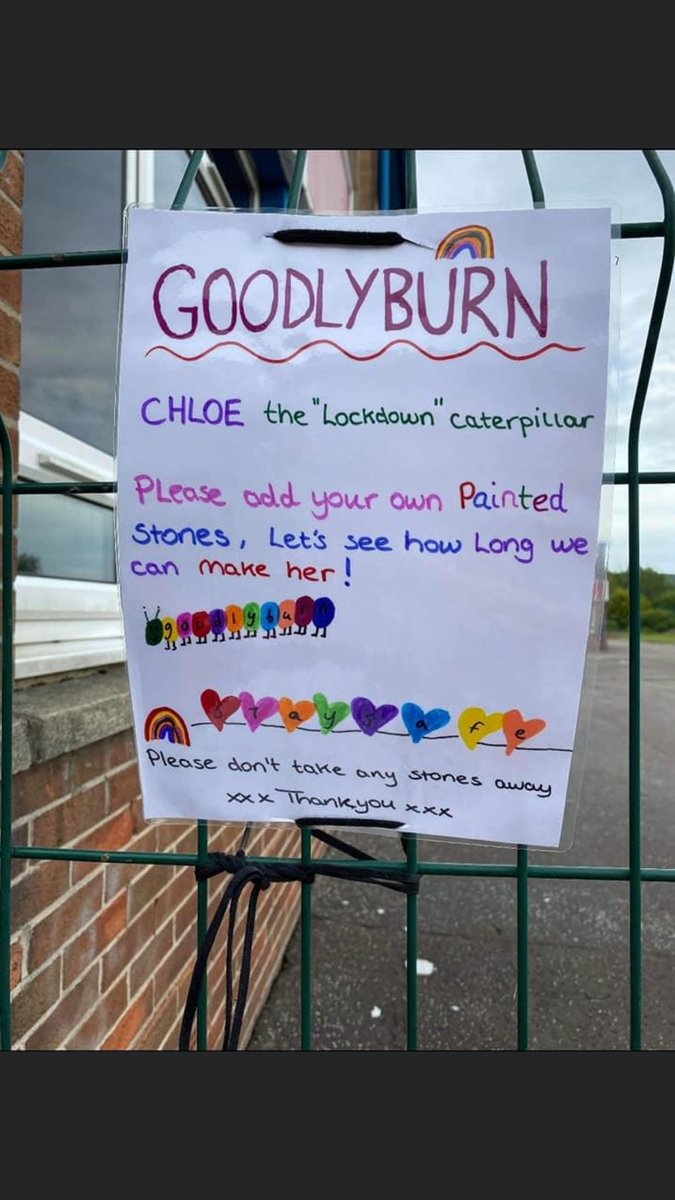 GOODLYBURN
CHLOE the "Lockdown" caterpillar
Please add your own Painted
Stones, Let's see how Long we
can make her!
goodlyburn
stay safe
Please don't take any stones away
xxx Thankyou xxx